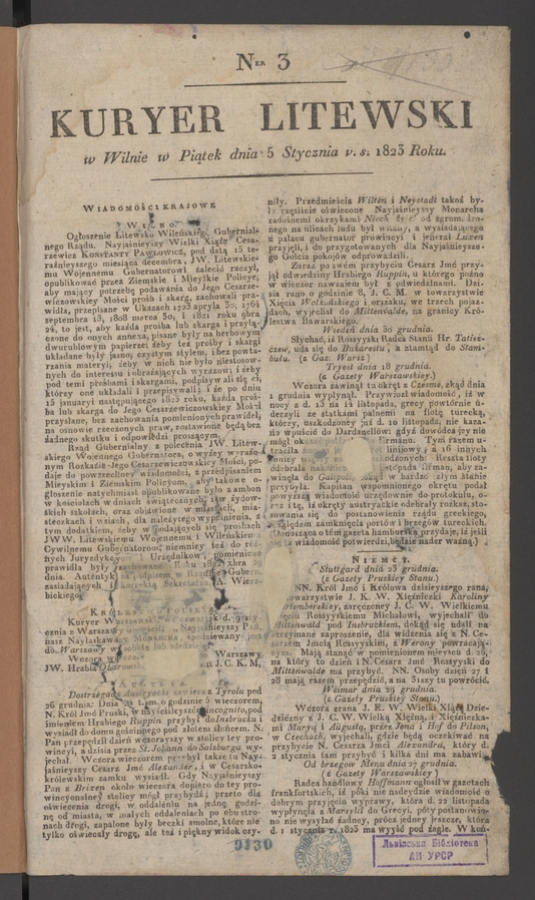 Ner 3
KURYER LITEWSKI
w Wilnie w Piątek dnia 5 Stycznia v. s. 1823 Roku.
WIADOMOŚCI KRAJOWE
WILNO.
Ogłoszenie Litewsko Wileńskiego Gubernial-
nego Rządu. Nayjaśnieyszy Wielki Xiąże Cesa-
rzewicz KONSTANTY PAWŁOWICZ, pod datą 15 te-
raźnieyszego miesiąca decembra, JW. Litewskie-
mu Wojennemu Gubernatorowi zalecić raczył,
opublikować przez Ziemskie i Mieyskie Policye,
aby mający potrzebę podawania do Jego Cesarze-
wiczowskiey Mości prośb i skarg, zachowali pra-
widła, przepisane w Ukazach
24, to jest, aby każda prośba lub skarga i przyłą-
czone do onych annexa, pisane były na herbowym
dwurublowym papierze; żeby też prośby i skargi
układane były jasno, czystym stylem, i bez powta-
rzania materyi; żeby w nich nie było niestosow-
nych do interessu i obrażających wyrazów; i żeby
pod temi prośbami i skargami, podpisywali się ci,
którzy one układali i przepisywali; i że po dniu
15 januaryi następującego 1823 roku, każda proś-
ba lub skarga do Jego Cesarzewiczowskiey Mości
przysłane, bez zachowania pomienionych prawideł,
na osnowie rzeczonych praw, zostawione będą bez
żadnego skutku i odpowiedzi proszącym.
Rząd Gubernialny z polecenia JW. Litew-
skiego Wojennego Gubernatora, o wyżey wyrażo-
nym Rozkazie Jego Cesarzewiczowskiey Mości, po-
daje do powszechney wiadomości, z przepisaniem
Mieyskim i Ziemskim Policyom, aby takowe o-
głoszenie natychmiast opublikowane było z ambon
w kościołach w dniach świątecznych, i w żydow-
skich szkołach, oraz objawione w miastach, mia-
steczkach i wsiach, dla należytego wypełnienia, z
tym dodatkiem, żeby w podających się prośbach
JWW. Litewskiemu Wojennemu i Wileńskiemu
Cywilnemu Gubernatorom, niemniey też do róż-
nych Jurysdykcy Urzędnikow, pomienione
prawidła były
dnia. Autentyk
zasiadających Sekretarz A. Wierz-
bickiego
KRÓLESTWO POLSKIE
Kuryer
cznia z Warszawy
nasz Nayłaskawszy Monarcha, spodziewany jest
do Warszawy w
Wczora Warszawy
JW. Hrabia J. C. K. M,
AUSTRYA
Dostrzegacz Austryacki zawiera z Tyrolu pod
26 grudnia: Dnia o godzinie 9 wieczorem,
N. Król Jmć Pruski, w nayściśleyszém incognito, pod
imieniem Hrabiego Ruppin przybył do Insbrucku i
wysiadł do domu gościnnego pod złotem słońcem. N.
Pan przepędził dzień wczorayszy w stolicy tey pro-
wincyi, a dzisia przez St. Johann do Salzburga wy-
jechał. Wczora wieczorem przybył także tu Nay-
jaśnieyszy Cesarz Jmć Alexander, i w Cesarsko-
królewskim zamku wysiadł. Gdy Nayjaśnieyszy
Pan z Brixen około wieczora dopiero do tey pro-
wincyonalney stolicy mógł przybydź; przeto dla
oświecenia drogi, w oddaleniu na jednę godzi-
nę od miasta, w małych oddaleniach po obu stro-
nach drogi, zapalone były beczki smolne, które nie
tylko oświecały drogę, ale też i piękny widok czy-
niły. Przedmieścia Wilten i Neystadt takoż by-
ły rzęsiście oświecone Nayjaśnieyszy Monarcha
radośnemi okrzykami Niech żyje! od zgromadzo-
nego na ulicach ludu był witany, a wysiadającego
u pałacu gubernator prowincyi i jenerał Luxem
przyjęli, i do przygotowanych dla Nayjaśnieysze-
go Gościa pokojów odprowadzili.
Zaraz po swém przybyciu Cesarz Jmć przy-
jął odwiedziny Hrabiego Ruppin, u którego późno
w wieczor nawzajem był z odwiedzinami. Dzi-
sia rano o godzinie 8, J. C. M. w towarzystwie
Xięcia Wołkońskiego i orszaku, we trzech pojaz-
dach, wyjechał do Mittenwalde, na granicy Kró-
lestwa Bawarskiego.
Wiedeń dnia 30 grudnia.
Słychać, iż Rossyyski Radca Stanu Hr. Tatisz-
czew, uda się do Bukarestu, a ztamtąd do Stam-
bułu. (z Gaz. Warsz)
Tryest dnia 18 grudnia.
(z Gazety Warszawskiey.)
Wczora zawinął tu okręt z Czesmé, zkąd dnia
1 grudnia wypłynął. Przywiozł wiadomość, iż w
nocy z d. 13 na 14 listopada, grecy powtórnie u-
derzyli ze statkami palnemi na flotę turecką,
której, uszkodzoney już d. 10 listopada, nie kaza-
no wpuścić do Dardanellów: gdyż dowódca jey nie
mógł okazać firmanu. Tym razem u-
traciła liniowy, z 16 innych
Reszta floty
odebrała listopada firman, aby za-
winęła do Gallipoli w bardzo złym stanie
przybyła. Kapitan wspomnionego okrętu podał
powyższą wiadomość urzędownie do protokułu, o-
raz i tę, iż okręty austryackie odebrały rozkaz, sto-
sowania się do postanowienia rządu greckiego,
względem zamknięcia portów i brzegów tureckich.
(Donosząca o tém gazeta hamburska przydaje, iż jeśli
ta wiadomość potwierdzi, będzie nader ważną.)
NIEMCY.
Stuttgard dnia 25 grudnia.
(z Gazety Pruskiey Stanu.)
NN. Król Jmć i Królowa dzisieyszego rana,
towarzystwie J. K. W. Xiężniczki Karoliny
Wirtemberskiey, zaręczoney J. C. W. Wielkiemu
Xięciu Rossyyskiemu Michałowi, wyjechali do
Mittenwald pod Instruckiem, dokąd się udali na
otrzymane zaproszenie, dla widzenia się z N. Ce-
sarzem Jmcią Rossyyskim, z Werony powracają-
cym. Mają stanąć w pomienionem mieyscu d. 26,
na który to dzień i N. Cesarz Jmć Rossyyski do
Mittenwalde ma przybydź. NN. Osoby dzień 27 i
28 mają razem przepędzić, a na 3szy tu powrócić.
Weimar dnia 29 grudnia.
(z Gazety Pruskiey Stanu.)
Wczora zrana J. K. W. Wielki Xiąże Dzie-
dziczny z J. C. W. Wielką Xiężną, i Xiężniczka-
mi Maryą i Augustą, przez Jena i Hof do Pilzen,
w Czechach, wyjechali, gdzie będą oczekiwać na
przybycie N. Cesarza Jmci Alexandra, który d.
2 stycznia tam przybydź i kilka dni ma zabawić.
Od brzegów Menu dnia 27 grudnia.
(z Gazety Warszawskiey)
Radca handlowy Hoffmann ogłosił w gazetach
frankfortskich, iż póki nie nadeydzie wiadomość o
dobrym przyjęciu wyprawy, która d. 22 listopada
wypłynęła z Marsylii do Grecyi, póty postanowio-
no nie wysyłać żadney, prócz jedney jeszcze, która
d. 1 stycznia r. 1823 ma wyyść pod żagle. W koń-
9130
Львівська Бібліотека
АН УРСР